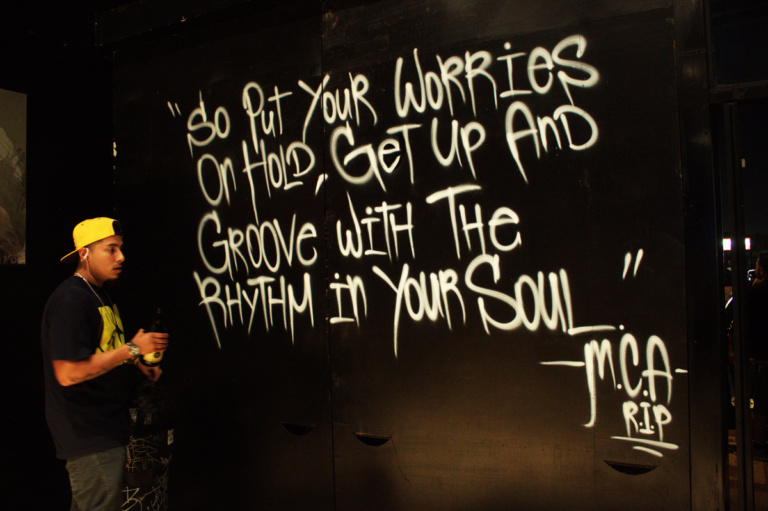 "So Put Your Worries
On Hold, Get Up And
Groove with The
Rhythm in Your Soul."
-M.C.A-
R.I.P